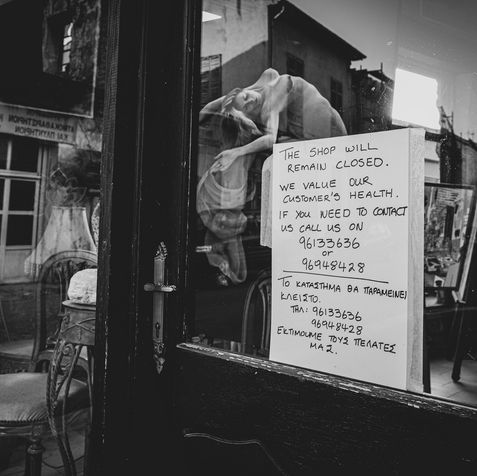 THE SHOP WILL
REMAIN CLOSED.
WE VALUE OUR
CUSTOMER'S HEALTH.
IF YOU NEED TO CONTACT
US CALL US ON
96133636
or
96948428
ΤΟ ΚΑΤΑΣΤΗΜΑ ΘΑ ΠΑΡΑΜΕΙΝΕΙ
ΚΛΕΙΣΤΟ.
ΤΗΛ: 96133636
96948428
ΕΚΤΙΜΟΥΜΕ ΤΟΥΣ ΠΕΛΑΤΕΣ
ΜΑΣ.